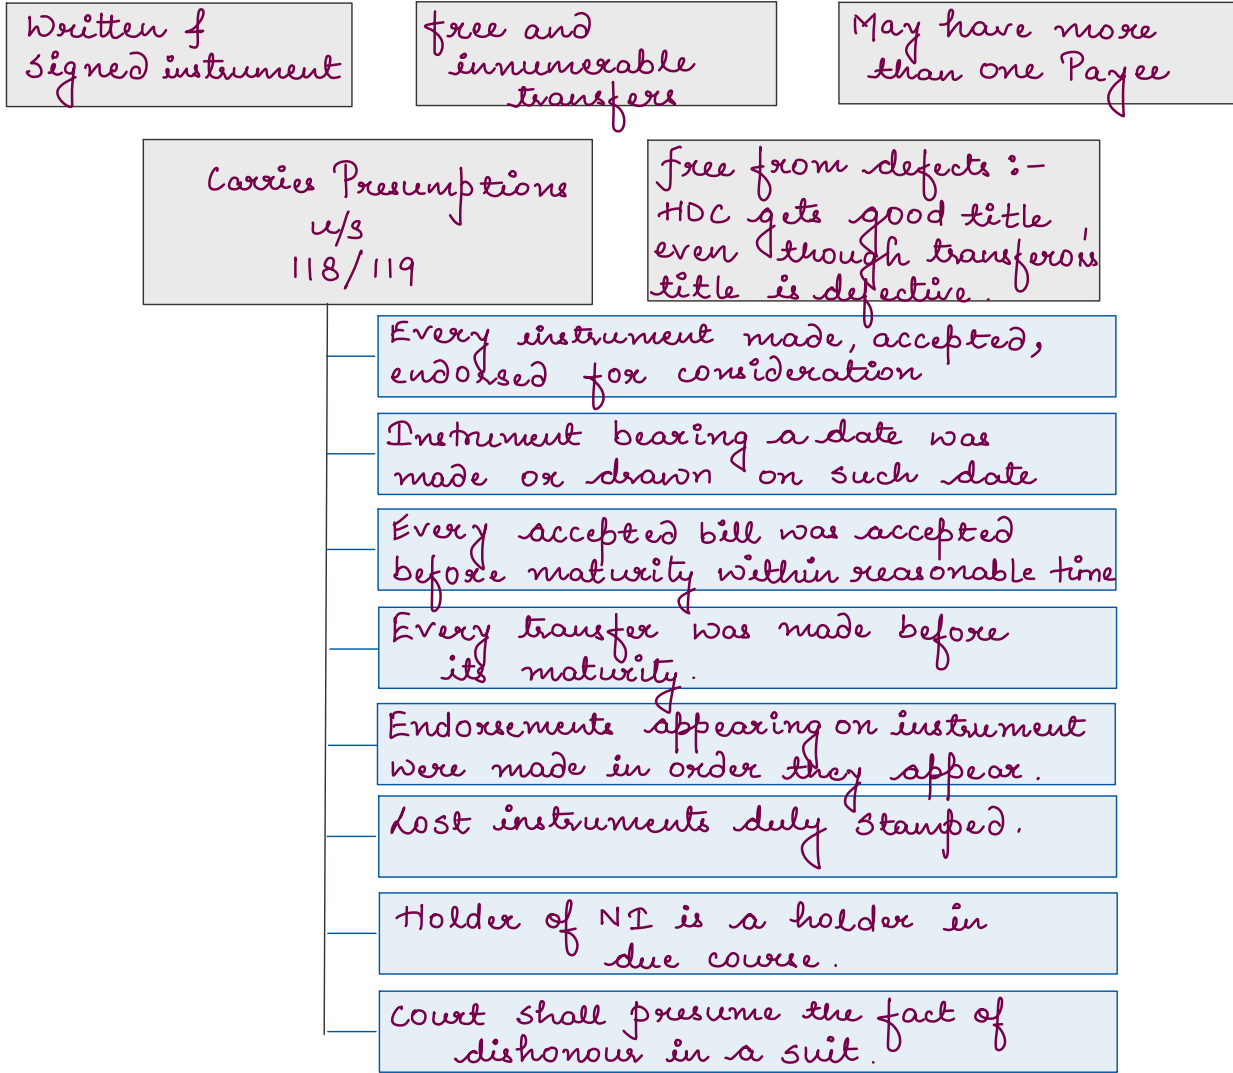 Written &
Signed instrument
free and
innumerable
transfers
May have more
than one Payee
Carries Presumptions
u/s
118/119
free from defects :-
HDC gets good title
even though transferor's
title is defective.
Every instrument made, accepted,
endorsed for consideration
Instrument bearing a date was
made or drawn on such date
Every accepted bill was accepted
before maturity within reasonable time
Every transfer was made before
its maturity.
Endorsements appearing on instrument
were made in order they appear.
Lost instruments duly stamped.
Holder of NI is a holder in
due course.
Court shall presume the fact of
dishonour in a suit.